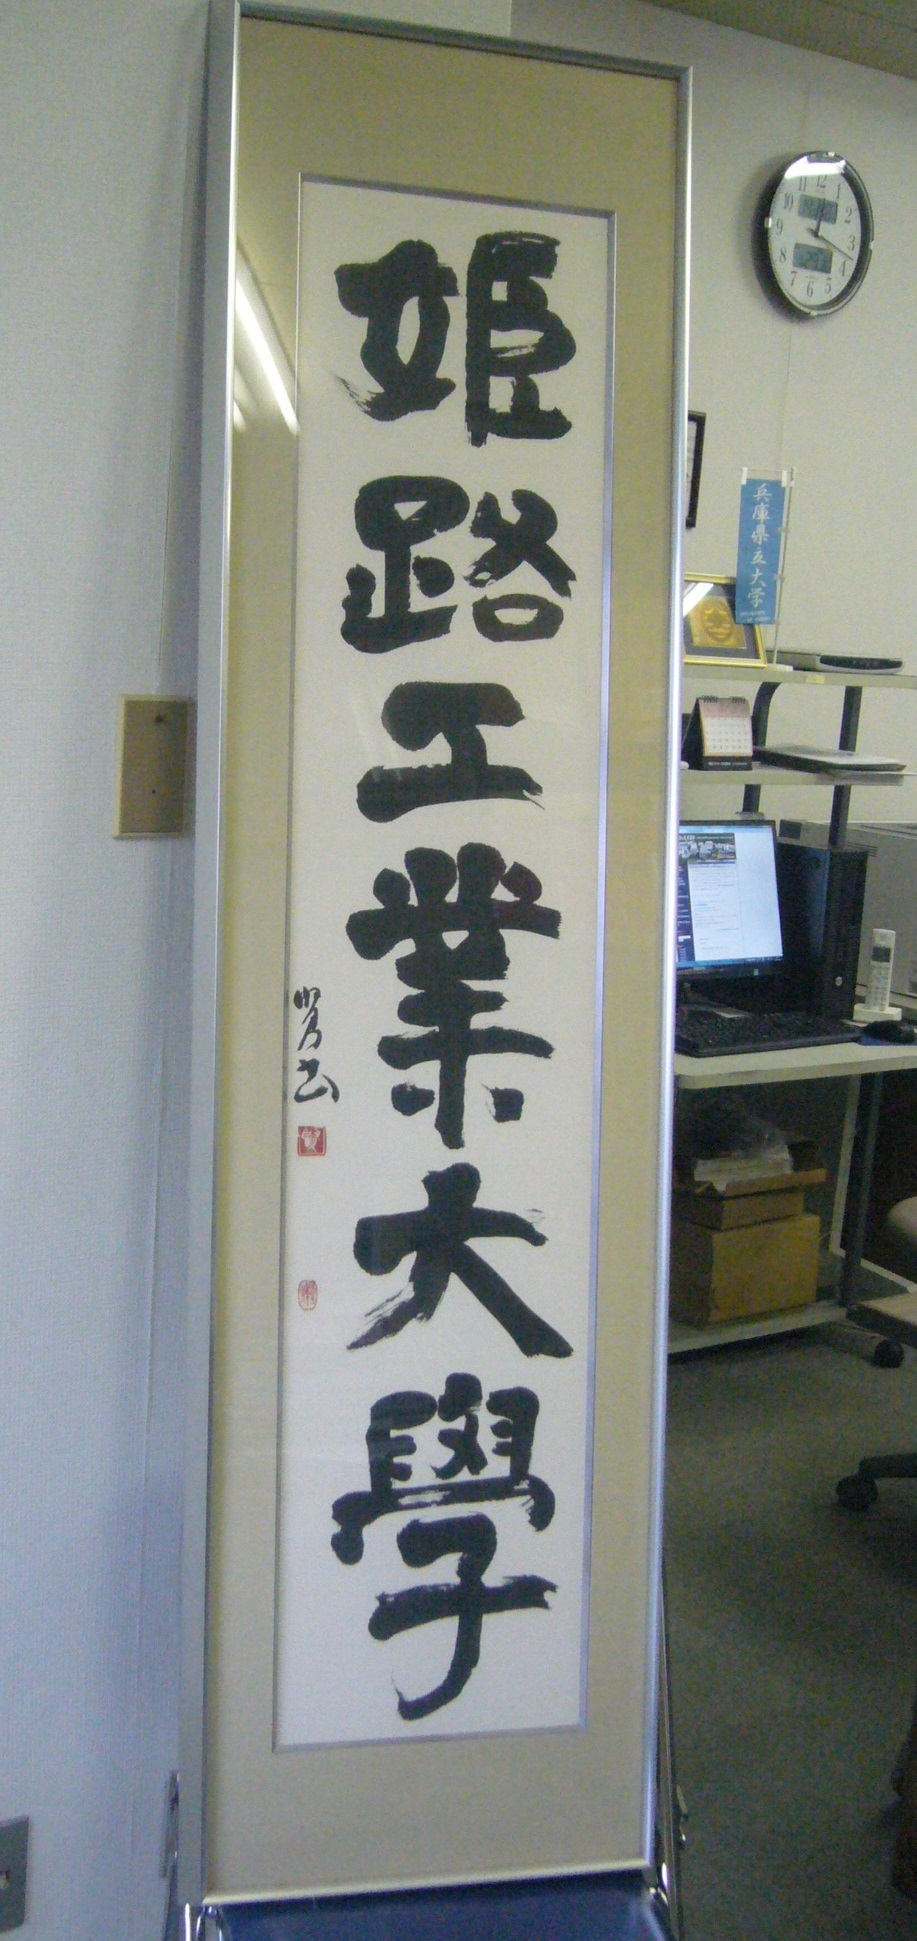 姫路工業大學
兵庫県立大学
12
1
2
3
4
5
6
7
8
9
10
11